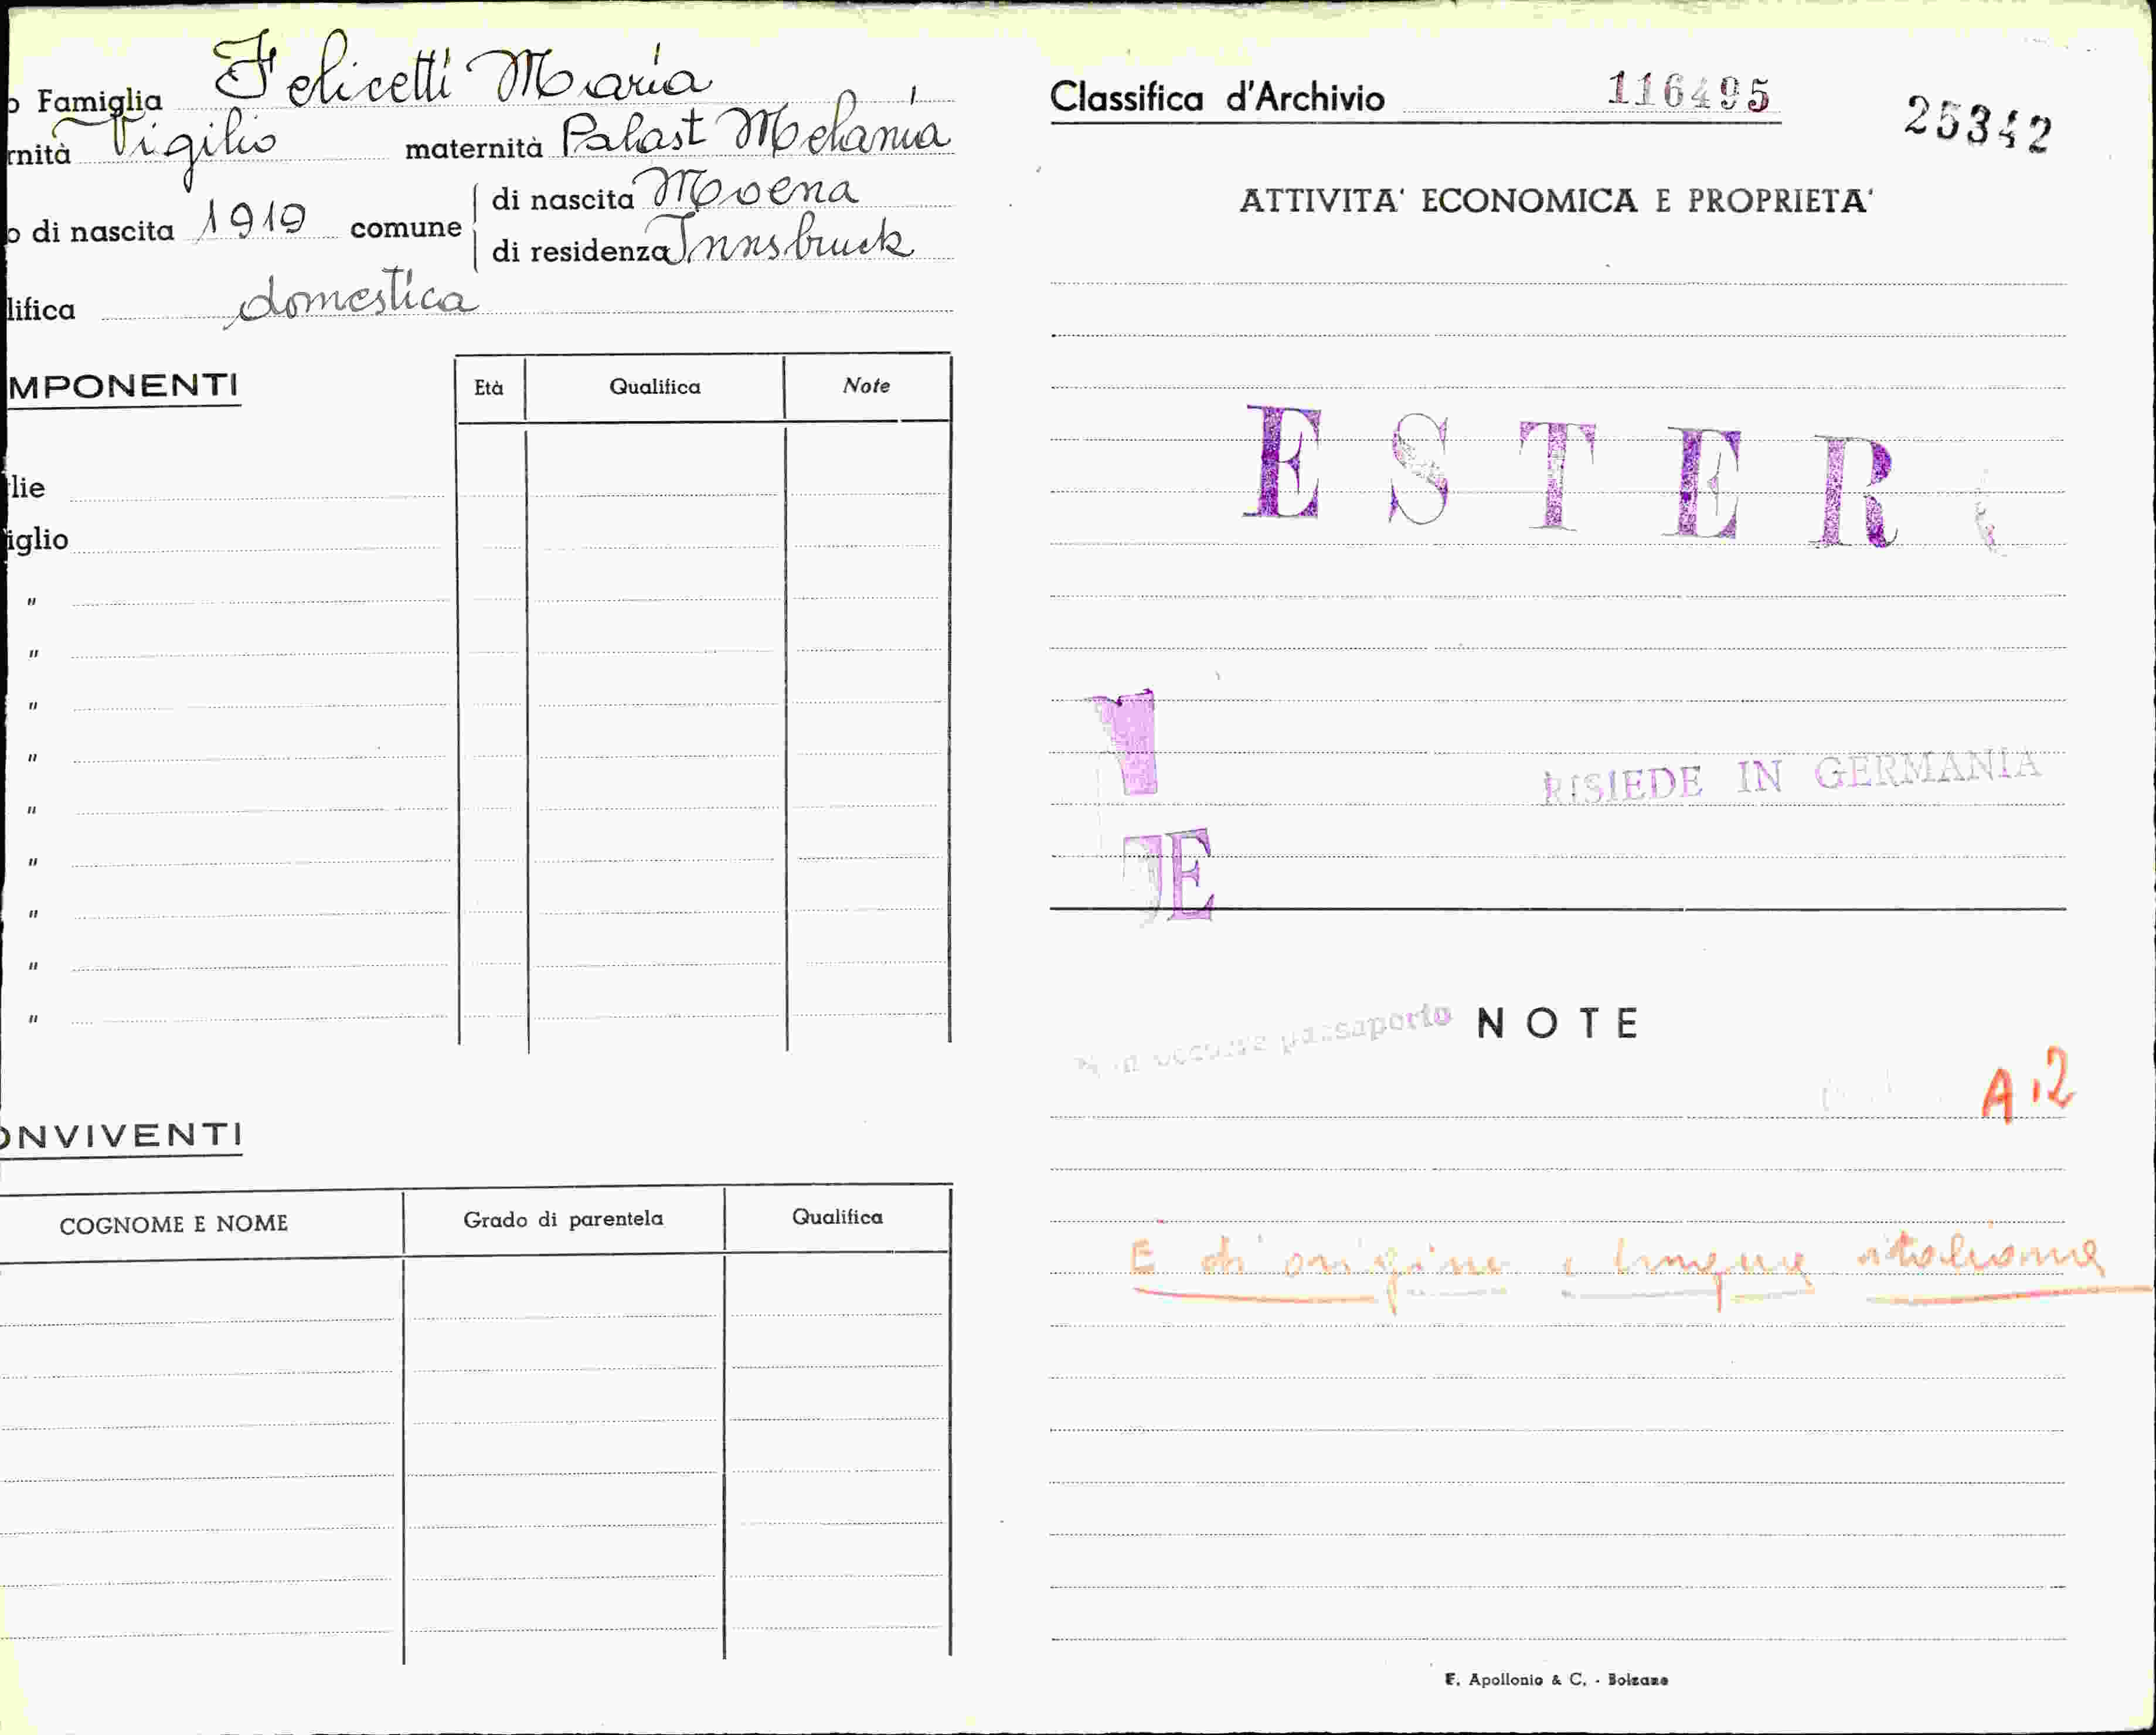 o Famiglia Felicetti Maria
rnità Vigilio maternità Palast Melania
o di nascita 1919 comune di nascita Moena
di residenza Innsbruck
lifica domestica
MPONENTI
Età Qualifica Note
lie
iglio
"
"
"
"
"
"
"
"
"
ONVIVENTI
COGNOME E NOME Grado di parentela Qualifica
Classifica d'Archivio 116495
25342
ATTIVITA' ECONOMICA E PROPRIETA'
ESTER
RISIEDE IN GERMANIA
E
passaporto
NOTE
A.2
E di origine e lingua italiana
F. Apollonio & C. - Bolzano